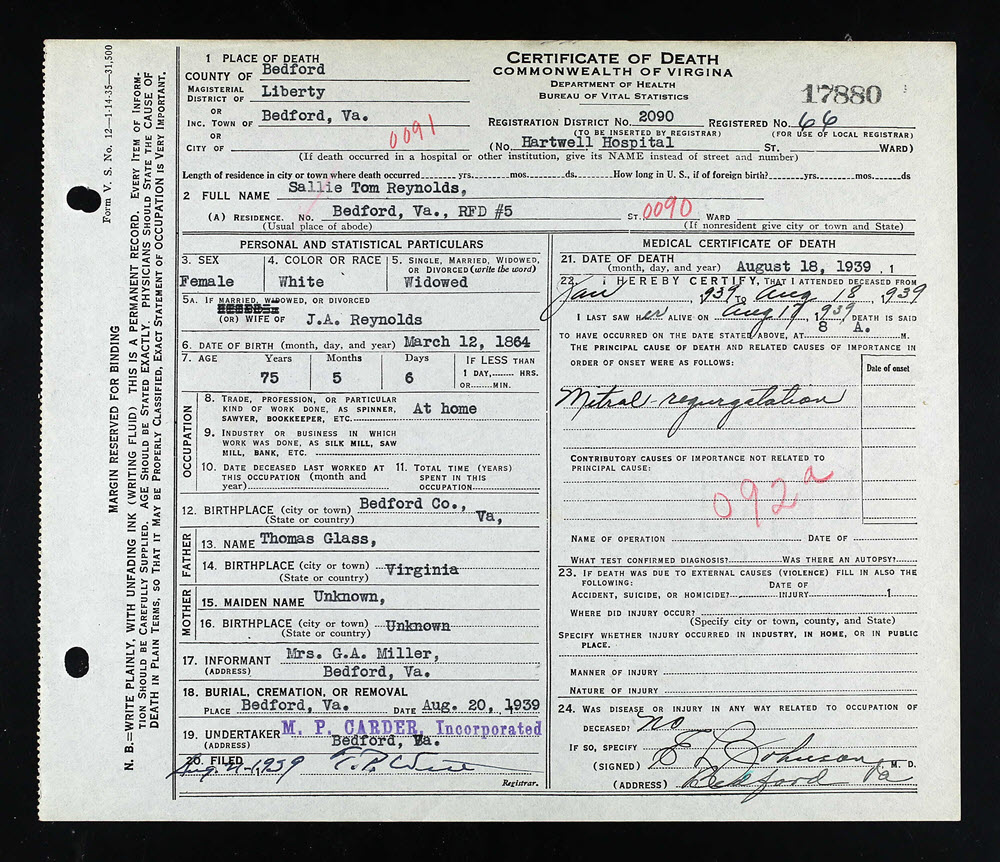 Form V. S. No. 12—1-14-35—31,500
MARGIN RESERVED FOR BINDING
N. B.=WRITE PLAINLY, WITH UNFADING INK (WRITING FLUID) THIS IS A PERMANENT RECORD. EVERY ITEM OF INFORM-
TION SHOULD BE CAREFULLY SUPPLIED. AGE SHOULD BE STATED EXACTLY. PHYSICIANS SHOULD STATE THE CAUSE OF
DEATH IN PLAIN TERMS, SO THAT IT MAY BE PROPERLY CLASSIFIED. EXACT STATEMENT OF OCCUPATION IS VERY IMPORTANT.
1 PLACE OF DEATH
COUNTY OF Bedford
MAGISTERIAL
DISTRICT OF Liberty
OR
INC. TOWN OF Bedford, Va.
OR
CITY OF
0091
CERTIFICATE OF DEATH
COMMONWEALTH OF VIRGINIA
DEPARTMENT OF HEALTH
BUREAU OF VITAL STATISTICS
17880
REGISTRATION DISTRICT NO. 2090 REGISTERED NO. 66
(TO BE INSERTED BY REGISTRAR) (FOR USE OF LOCAL REGISTRAR)
(No. Hartwell Hospital ST. WARD)
(If death occurred in a hospital or other institution, give its NAME instead of street and number)
Length of residence in city or town where death occurred yrs. mos. ds. How long in U. S., if of foreign birth? yrs. mos. ds
2 FULL NAME Sallie Tom Reynolds,
(A) RESIDENCE. No. Bedford, Va., RFD #5 ST. 0090 WARD
(Usual place of abode) (If nonresident give city or town and State)
PERSONAL AND STATISTICAL PARTICULARS
3. SEX 4. COLOR OR RACE 5. SINGLE, MARRIED, WIDOWED,
OR DIVORCED (write the word)
Female White Widowed
5A. IF MARRIED, WIDOWED, OR DIVORCED
(OR) WIFE OF J.A. Reynolds
6. DATE OF BIRTH (month, day, and year) March 12, 1864
7. AGE Years Months Days IF LESS THAN
75 5 6 1 DAY, HRS.
OR MIN.
OCCUPATION
8. TRADE, PROFESSION, OR PARTICULAR
KIND OF WORK DONE, AS SPINNER, At home
SAWYER, BOOKKEEPER, ETC.
9. INDUSTRY OR BUSINESS IN WHICH
WORK WAS DONE, AS SILK MILL, SAW
MILL, BANK, ETC.
10. DATE DECEASED LAST WORKED AT 11. TOTAL TIME (YEARS)
THIS OCCUPATION (month and SPENT IN THIS
year) OCCUPATION
12. BIRTHPLACE (city or town) Bedford Co.,
(State or country) Va,
FATHER
13. NAME Thomas Glass,
14. BIRTHPLACE (city or town) Virginia
(State or country)
MOTHER
15. MAIDEN NAME Unknown,
16. BIRTHPLACE (city or town) Unknown
(State or country)
17. INFORMANT Mrs. G.A. Miller,
(ADDRESS) Bedford, Va.
18. BURIAL, CREMATION, OR REMOVAL
PLACE Bedford, Va. DATE Aug. 20, 1939
19. UNDERTAKER M. P. CARDER, Incorporated
(ADDRESS) Bedford, Va.
20. FILED
Registrar.
MEDICAL CERTIFICATE OF DEATH
21. DATE OF DEATH
(month, day, and year) August 18, 1939 . 1
22. I HEREBY CERTIFY, THAT I ATTENDED DECEASED FROM
Jan 939 TO Aug 18 939
I LAST SAW HER ALIVE ON Aug 17, 1939 DEATH IS SAID
TO HAVE OCCURRED ON THE DATE STATED ABOVE, AT 8 A. M.
THE PRINCIPAL CAUSE OF DEATH AND RELATED CAUSES OF IMPORTANCE IN
ORDER OF ONSET WERE AS FOLLOWS: Date of onset
Mitral regurgitation
CONTRIBUTORY CAUSES OF IMPORTANCE NOT RELATED TO
PRINCIPAL CAUSE:
092a
NAME OF OPERATION DATE OF
WHAT TEST CONFIRMED DIAGNOSIS? WAS THERE AN AUTOPSY?
23. IF DEATH WAS DUE TO EXTERNAL CAUSES (VIOLENCE) FILL IN ALSO THE
FOLLOWING: DATE OF
ACCIDENT, SUICIDE, OR HOMICIDE? INJURY 1
WHERE DID INJURY OCCUR?
(Specify city or town, county, and State)
SPECIFY WHETHER INJURY OCCURRED IN INDUSTRY, IN HOME, OR IN PUBLIC
PLACE.
MANNER OF INJURY
NATURE OF INJURY
24. WAS DISEASE OR INJURY IN ANY WAY RELATED TO OCCUPATION OF
DECEASED? no
IF SO, SPECIFY
(SIGNED) Johnson, M. D.
(ADDRESS) Bedford Va